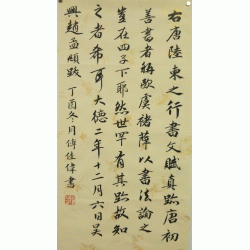 右唐陸柬之行書文賦真跡唐初
善書者稱歐虞褚薛以書法論之
豈在四子下耶然世罕有其跡故知
之者希耳大德二年十二月六日吴
興趙孟頫跋 丁酉冬月傅佳偉書